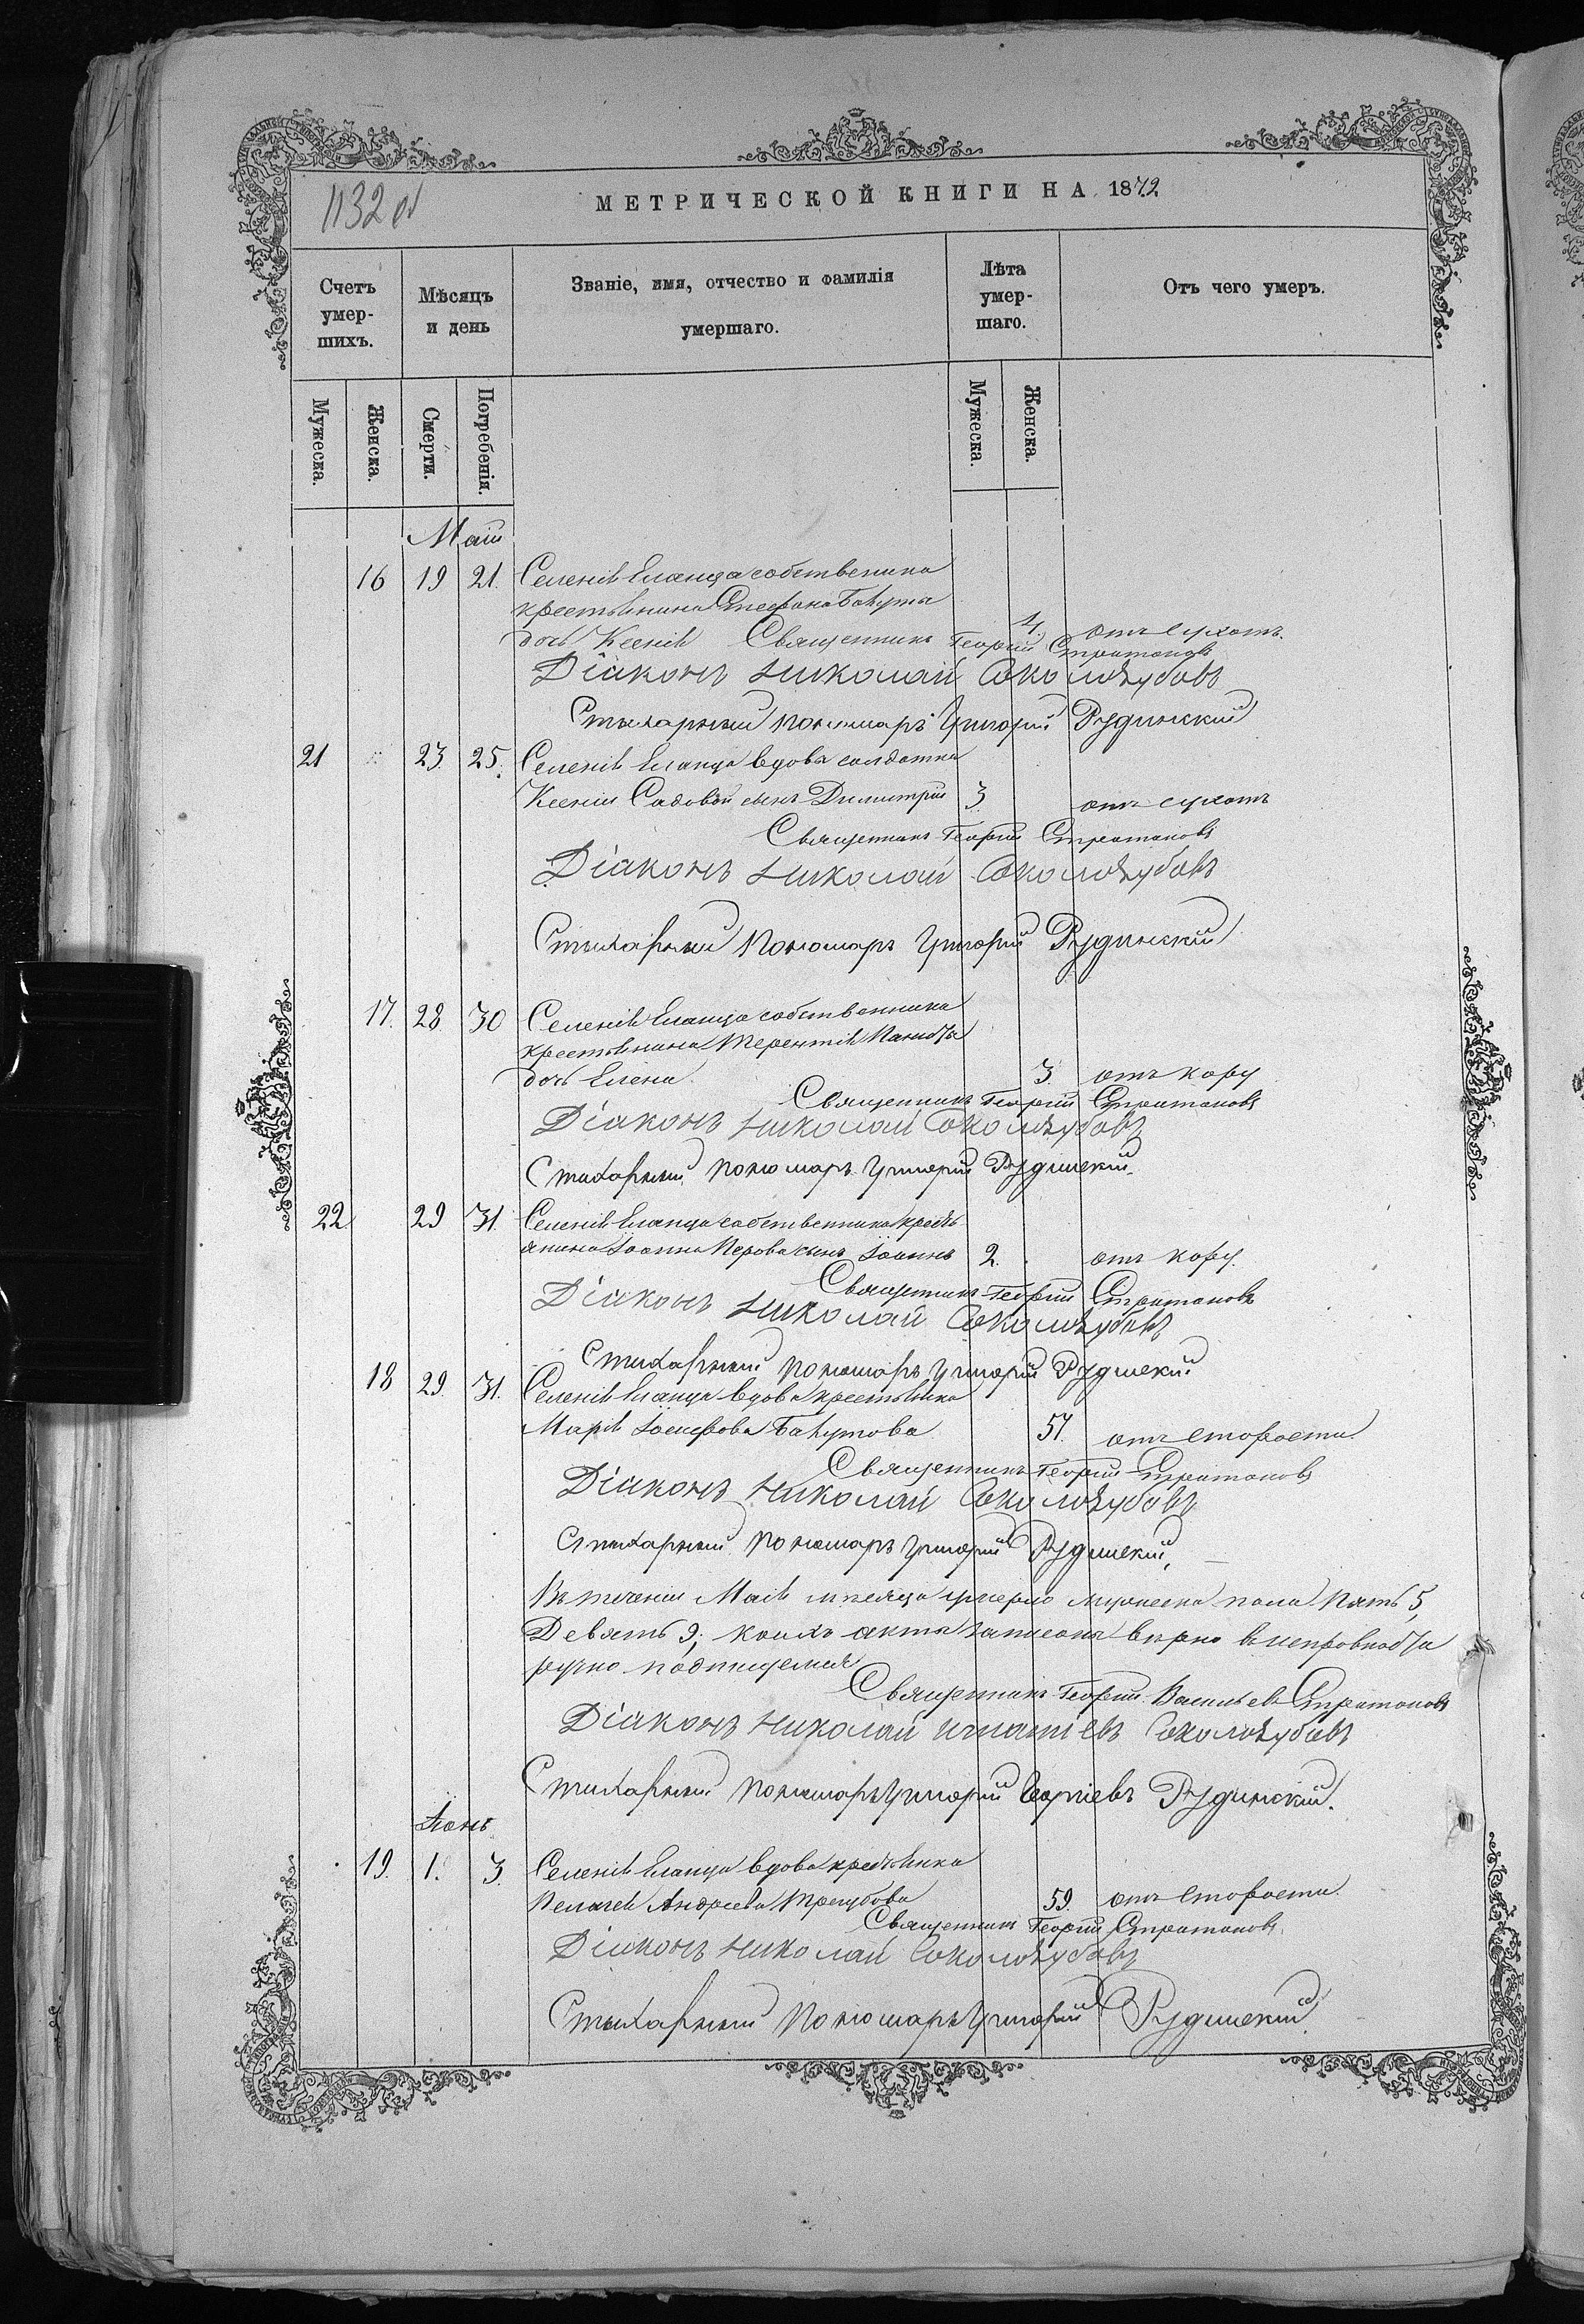 1132 об
МЕТРИЧЕСКОЙ КНИГИ НА 1872
Счетъ умер-шихъ.
Мѣсяцъ и день
Званіе, имя, отчество и фамилія умершаго.
Лѣта умер-шаго.
Отъ чего умеръ.
Мужеска.
Женска.
Смерти.
Погребенія.
Мужеска.
Женска.
Май
16 19 21. Селенія Еланца собственика
крестьянина Стефана
дочь Ксенія 4. отъ сухотъ.
Священникъ Георгій Стратановъ
Діаконъ Николай Соколозубовъ
Стихарный пономарь Григорій Рудинскій
21 23 25. Селенія Еланца вдовы солдатки
Ксеніи Садовой сынъ Димитрій 3 отъ сухотъ
Священникъ Георгій Стратановъ
Діаконъ Николай Соколозубовъ
Стихарный Пономарь Григорій Рудинскій
17. 28 30 Селенія Еланца собственника
крестьянина Терентія
дочь Елена 3. отъ кору
Священникъ Георгій Стратановъ
Діаконъ Николай Соколозубовъ
Стихарный пономарь Григорій Рудинскій.
22 29 31 Селенія Еланца собственника кресть
янина Іоанна Перова сынъ Іоаннъ 2. отъ кору.
Священникъ Георгій Стратановъ
Діаконъ Николай Соколозубовъ
Стихарный пономарь Григорій Рудинскій
18 29. 31. Селенія Еланца вдова крестьянка
Марія Іосифова 57. отъ старости
Священникъ Георгій Стратановъ
Діаконъ Николай Соколозубовъ
Стихарный пономарь Григорій Рудинскій,
Въ теченіи Мая мѣсяца умерло мужеска пола Пять 5,
Девять 9; коихъ акты записаны вѣрно
ручно подпишемся
Священникъ Георгій Васильевъ Стратановъ
Діаконъ Николай Игнатіевъ Соколозубовъ
Стихарный пономарь Григорій Георгіевъ Рудинскій.
Іюнь
19. 1. 3 Селенія Еланца вдова крестьянка
Пелагея Андреева 59. отъ старости.
Священникъ Георгій Стратановъ
Діаконъ Николай Соколозубовъ
Стихарный Пономарь Григорій Рудинскій